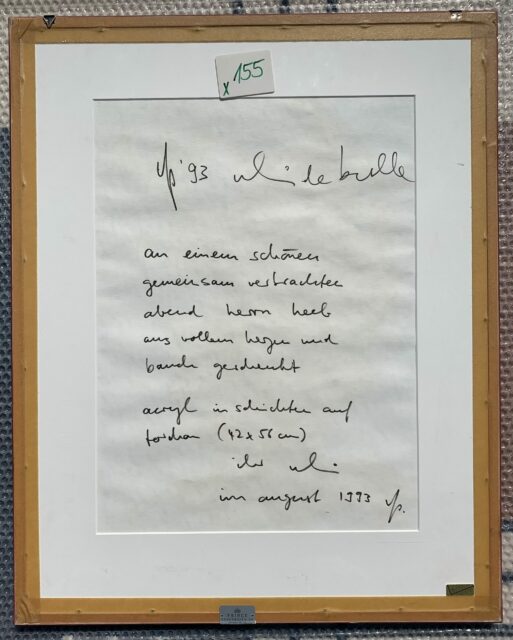 x 155
'93 uli
an einem schönen
gemeinsam verbrachten
abend herrn heeb
aus vollem herzen und
bauche geschenkt
acryl in schichten auf
torchon (42 x 56 cm)
ihr uli
im august 1993
PRINCE